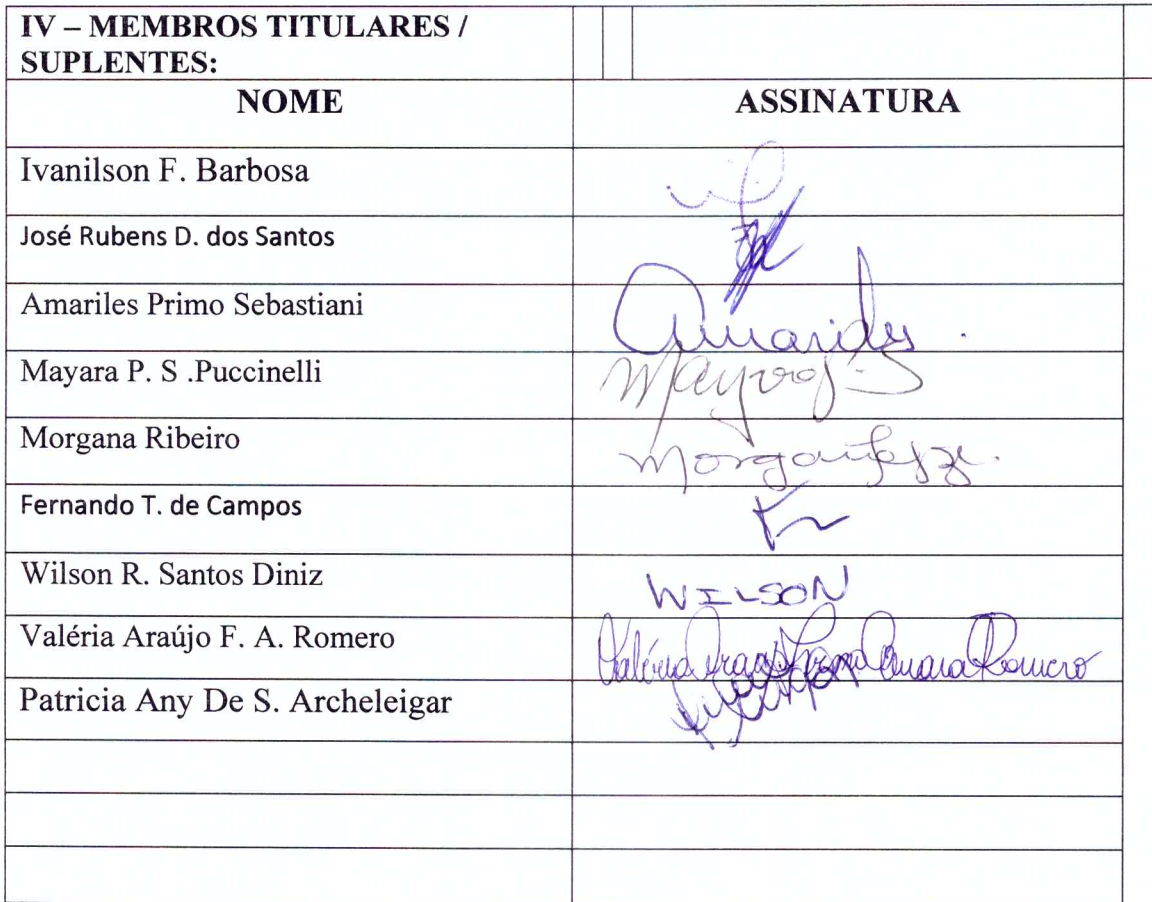 IV – MEMBROS TITULARES /
SUPLENTES:
NOME ASSINATURA
Ivanilson F. Barbosa
José Rubens D. dos Santos
Amariles Primo Sebastiani
Mayara P. S .Puccinelli
Morgana Ribeiro
Fernando T. de Campos
Wilson R. Santos Diniz WILSON
Valéria Araújo F. A. Romero Valéria Romero
Patricia Any De S. Archeleigar